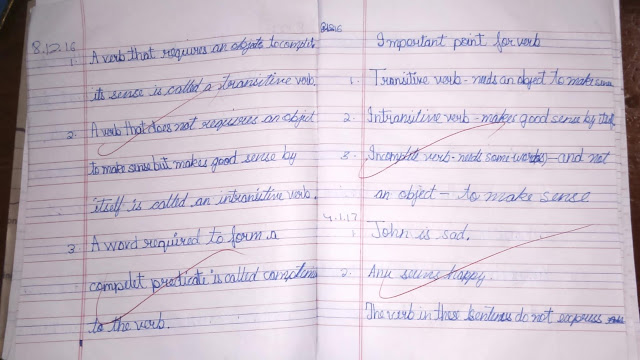 8.12.16
1. A verb that requires an objects to complet
its sense is called a transitive verb.
2. A verb that does not requiries an object
to make sense but makes good sense by
itself is called an intransitive verb.
3. A word required to form a
compelet predicate is called complime
to the verb.
Important point for verb
1. Transitive verb - needs an object to make sense
2. Intransitive verb - makes good sense by itself
3. Incomplte verb - needs some word(s) - and not
an object - to make sense
4.1.17
1. John is sad.
2. Anu seems happy.
The verb in these sentences do not express